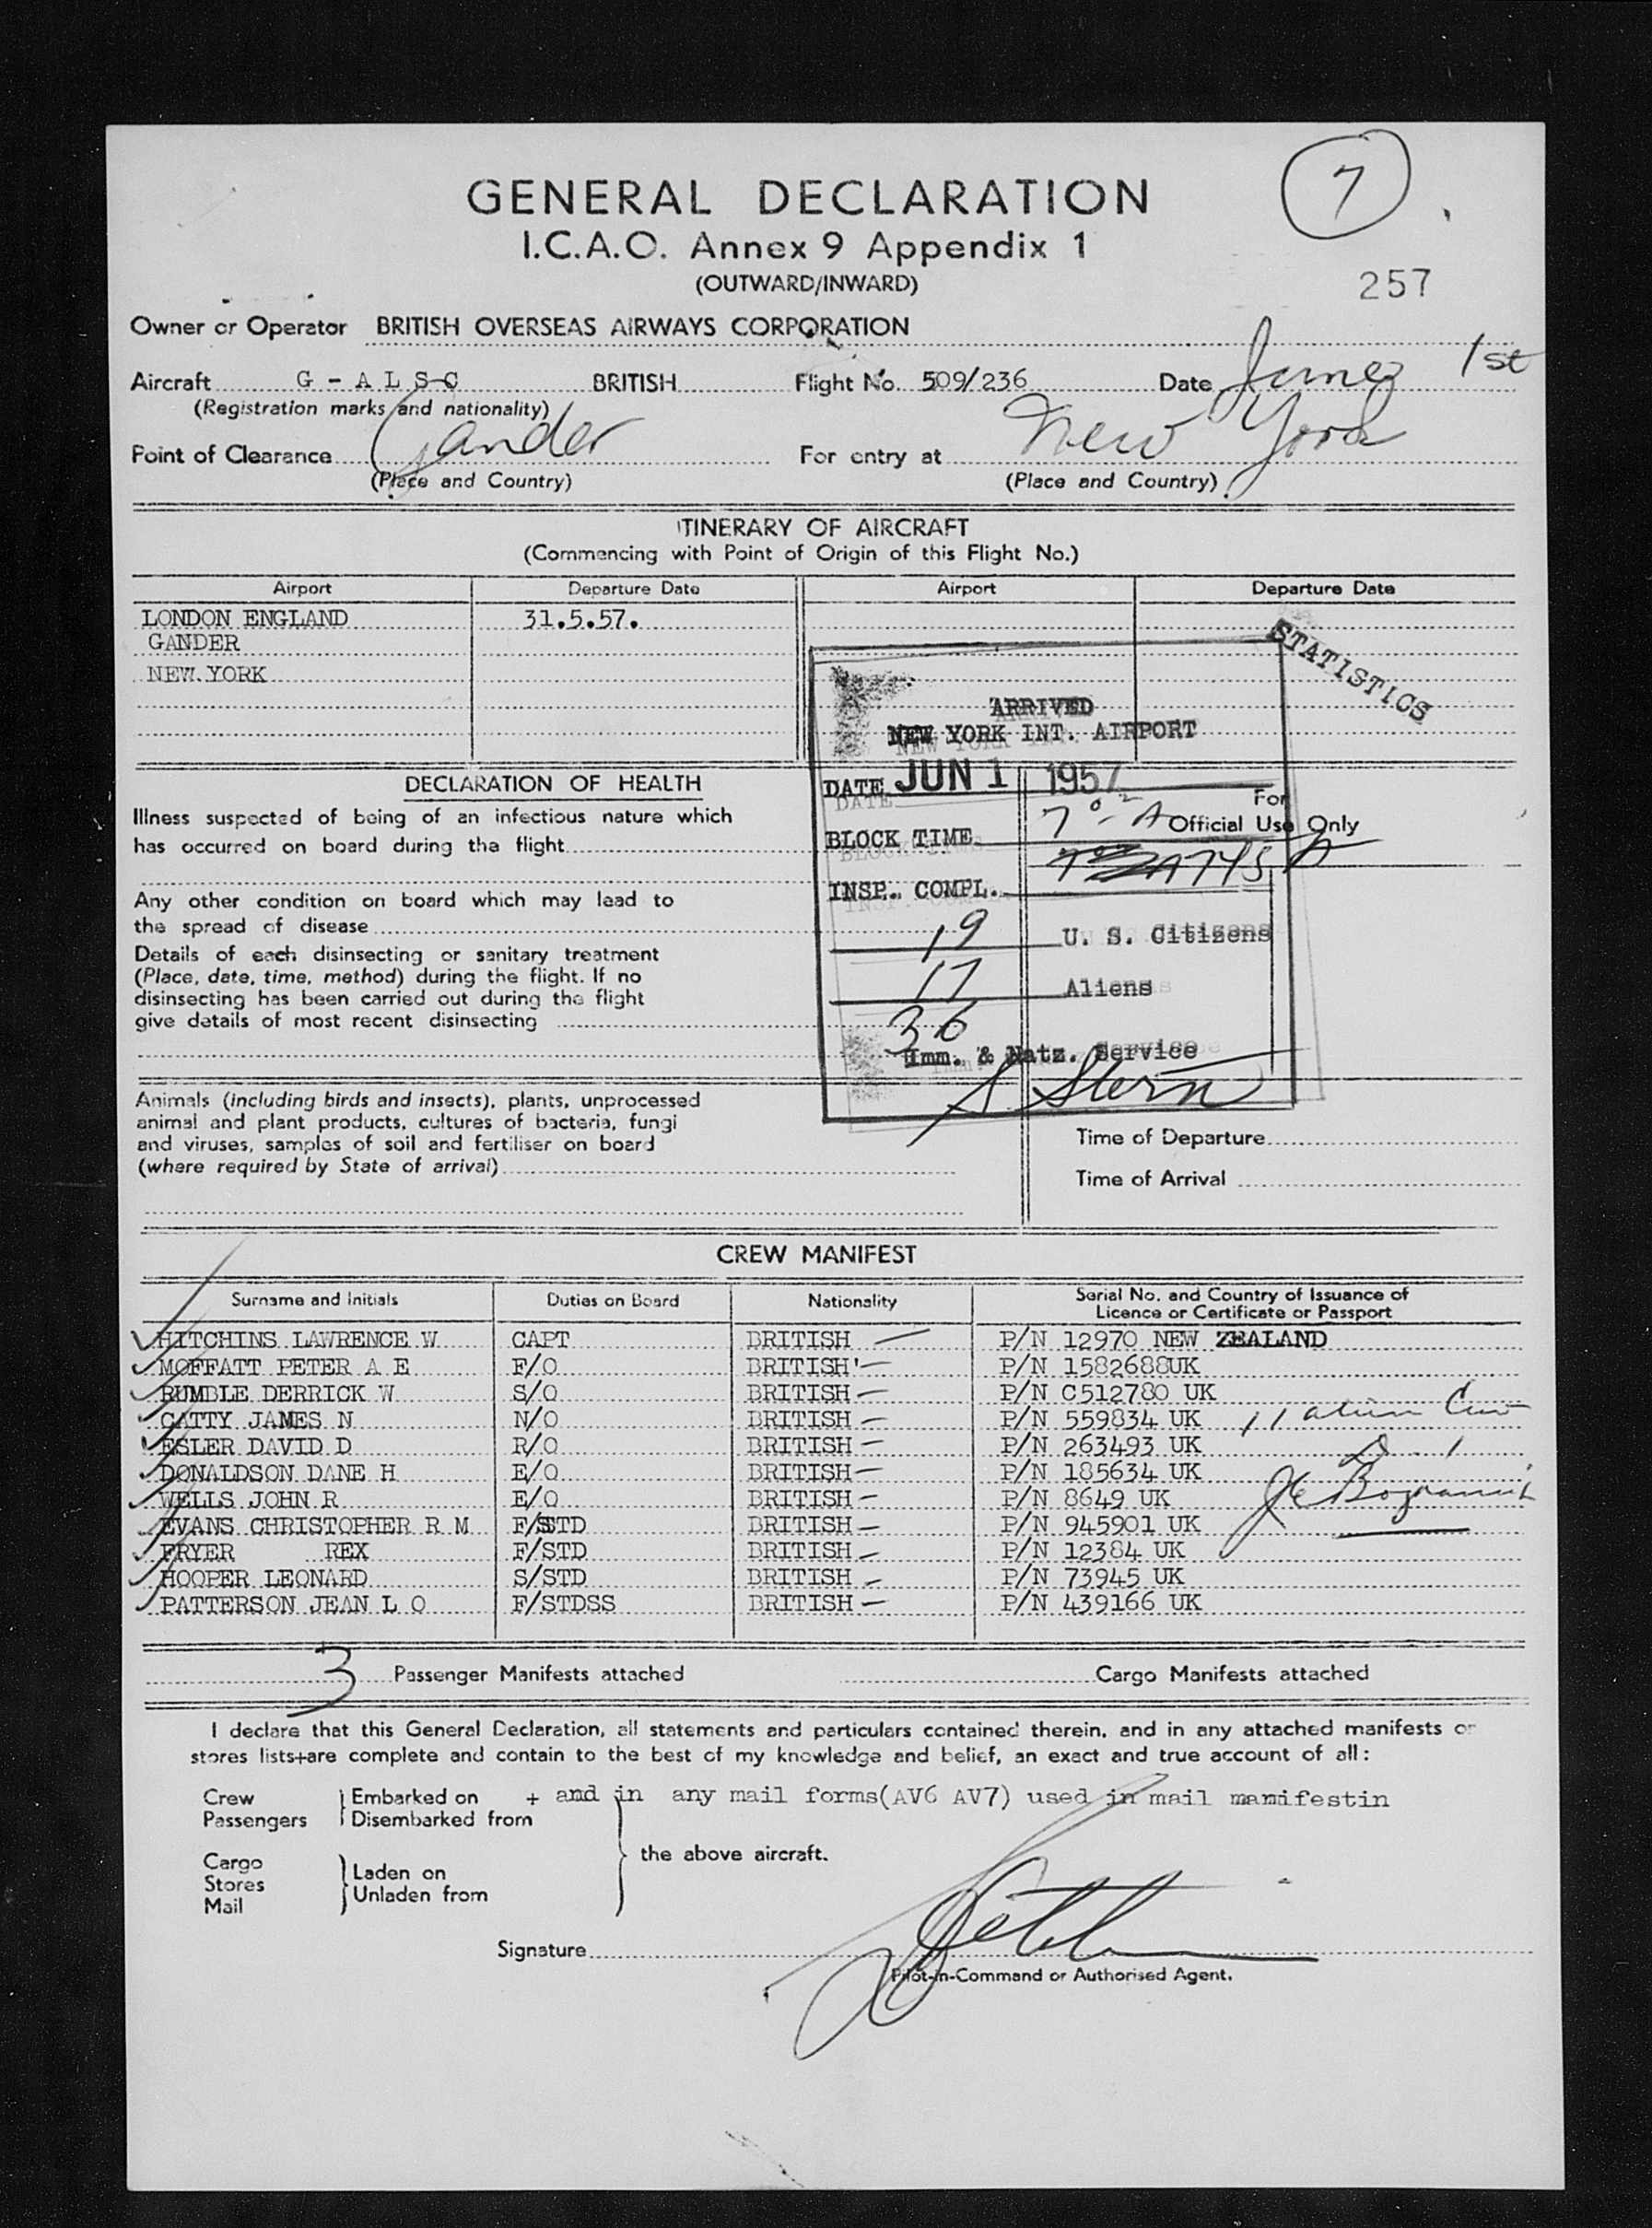 7
GENERAL DECLARATION
I.C.A.O. Annex 9 Appendix 1
(OUTWARD/INWARD)
257
Owner or Operator BRITISH OVERSEAS AIRWAYS CORPORATION
Aircraft G - A L S C BRITISH Flight No. 509/236 Date June 1st
(Registration marks and nationality)
Point of Clearance Gander For entry at New York
(Place and Country) (Place and Country)
ITINERARY OF AIRCRAFT
(Commencing with Point of Origin of this Flight No.)
Airport Departure Date Airport Departure Date
LONDON ENGLAND 31.5.57.
GANDER
NEW YORK
STATISTICS
ARRIVED
NEW YORK INT. AIRPORT
DATE JUN 1 1957
BLOCK TIME
INSP. COMPL. 745 A
19 U. S. Citizens
17 Aliens
36
Imm. & Natz. Service
S. Stern
DECLARATION OF HEALTH
For
Official Use Only
Illness suspected of being of an infectious nature which
has occurred on board during the flight
Any other condition on board which may lead to
the spread of disease
Details of each disinsecting or sanitary treatment
(Place, date, time, method) during the flight. If no
disinsecting has been carried out during the flight
give details of most recent disinsecting
Animals (including birds and insects), plants, unprocessed
animal and plant products, cultures of bacteria, fungi
and viruses, samples of soil and fertiliser on board
(where required by State of arrival)
Time of Departure
Time of Arrival
CREW MANIFEST
Surname and Initials Duties on Board Nationality Serial No. and Country of Issuance of
Licence or Certificate or Passport
HITCHINS LAWRENCE W CAPT BRITISH P/N 12970 NEW ZEALAND
MOFFATT PETER A E F/O BRITISH P/N 1582688UK
RUMBLE DERRICK W S/O BRITISH P/N C512780 UK
CATTY JAMES N N/O BRITISH P/N 559834 UK 11 alien Crew
ESLER DAVID D R/O BRITISH P/N 263493 UK
DONALDSON DANE H E/O BRITISH P/N 185634 UK
WELLS JOHN R E/O BRITISH P/N 8649 UK
EVANS CHRISTOPHER R M F/STD BRITISH P/N 945901 UK
FRYER REX F/STD BRITISH P/N 12384 UK
HOOPER LEONARD S/STD BRITISH P/N 73945 UK
PATTERSON JEAN L O F/STDSS BRITISH P/N 439166 UK
3 Passenger Manifests attached Cargo Manifests attached
I declare that this General Declaration, all statements and particulars contained therein, and in any attached manifests or
stores lists+are complete and contain to the best of my knowledge and belief, an exact and true account of all:
Crew Embarked on + and in any mail forms(AV6 AV7) used in mail manifestin
Passengers Disembarked from
the above aircraft.
Cargo
Stores Laden on
Mail Unladen from
Signature
Pilot-in-Command or Authorised Agent.